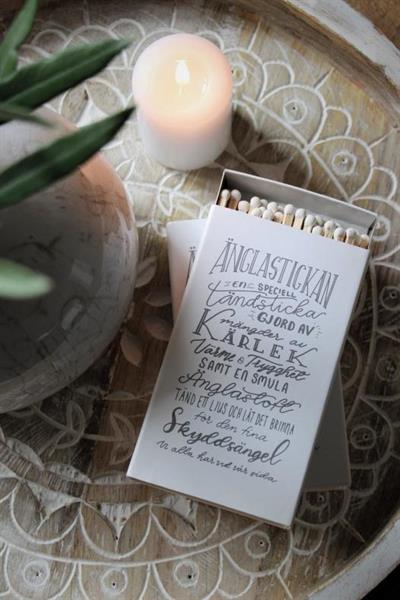 ÄNGLASTICKAN
EN SPECIELL
tändsticka
GJORD AV
mängder av
KÄRLEK
Värme & Trygghet
SAMT EN SMULA
Änglastoft
TÄND ETT LJUS OCH LÅT DET BRINNA
för den fina
Skyddsängel
vi alla har vid vår sida